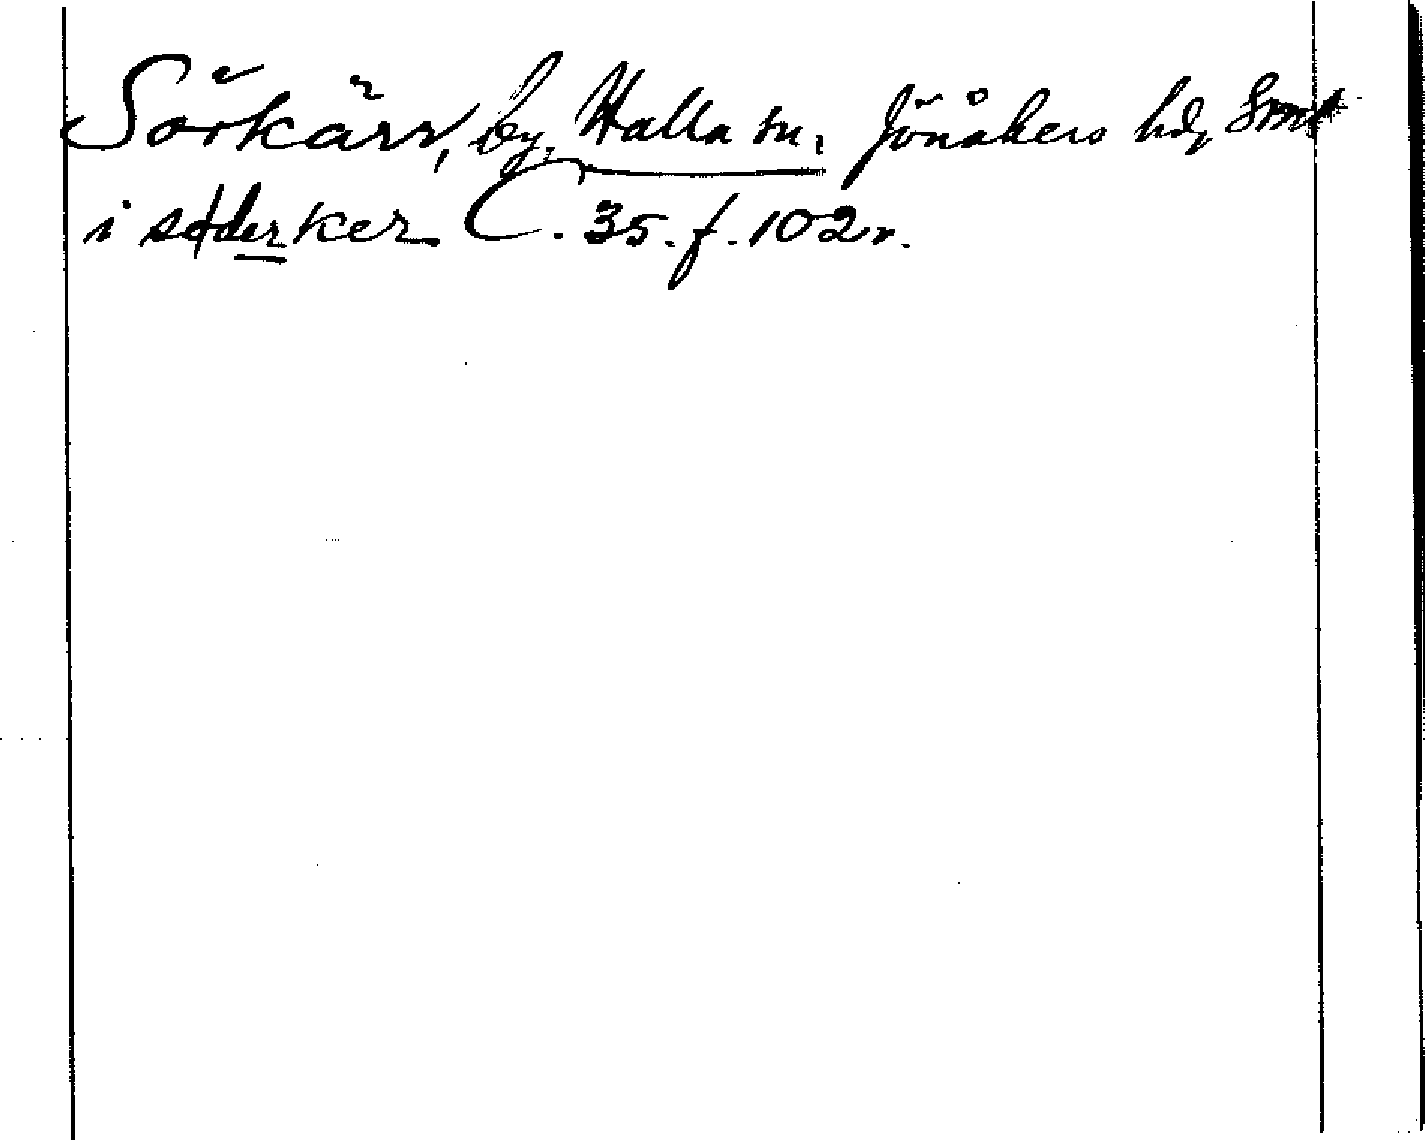 Sörkärr, by, Halla sn, Jönåkers hd, Srml
i søderker C. 35. f. 102 r.